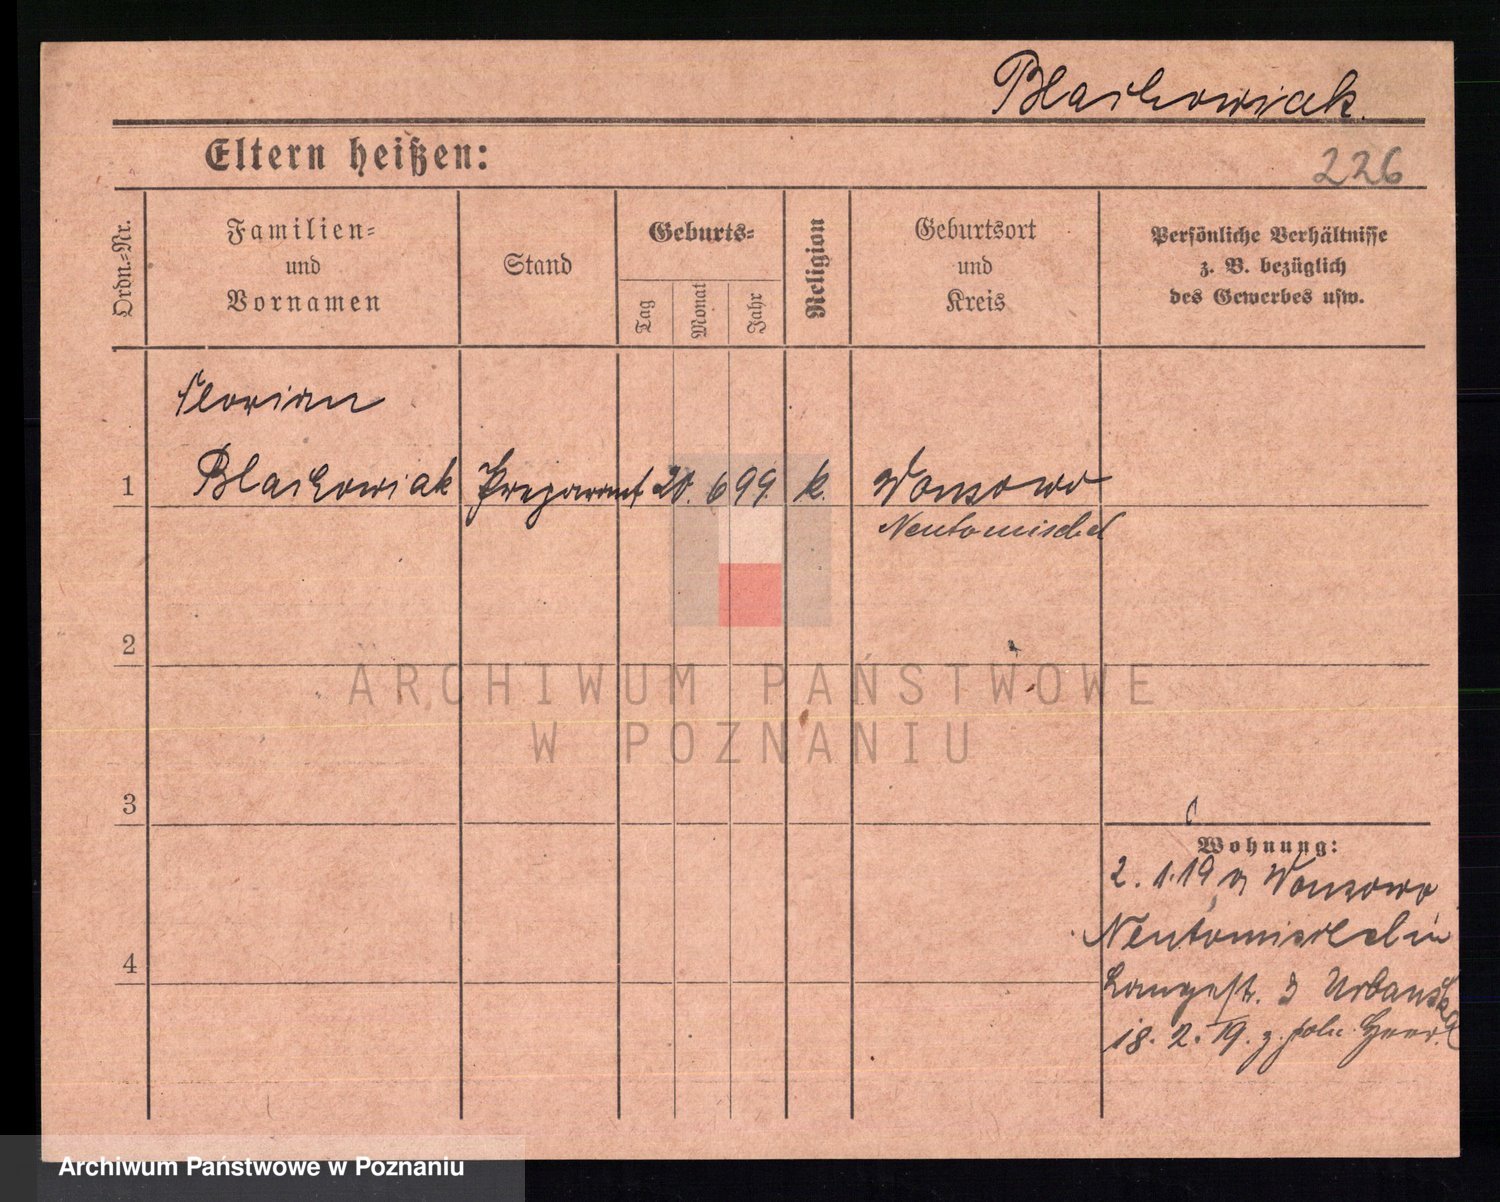 Blaichowiak.
Eltern heißen:
226
Ordn.-Nr.
Familien-
und
Vornamen
Stand
Geburts-
Tag
Monat
Jahr
Religion
Geburtsort
und
Kreis
Persönliche Verhältnisse
z. B. bezüglich
des Gewerbes usw.
Florian
1 Blaichowiak Preparant 20. 6 99. k. Wonsowo
Neutomischel
2
3
Wohnung:
2. 1. 19 Wonsowo
Neutomischel
4
Langestr. 3 Urbanska
18. 2. 19. z. poln. Heer.
ARCHIWUM PAŃSTWOWE
W POZNANIU
Archiwum Państwowe w Poznaniu